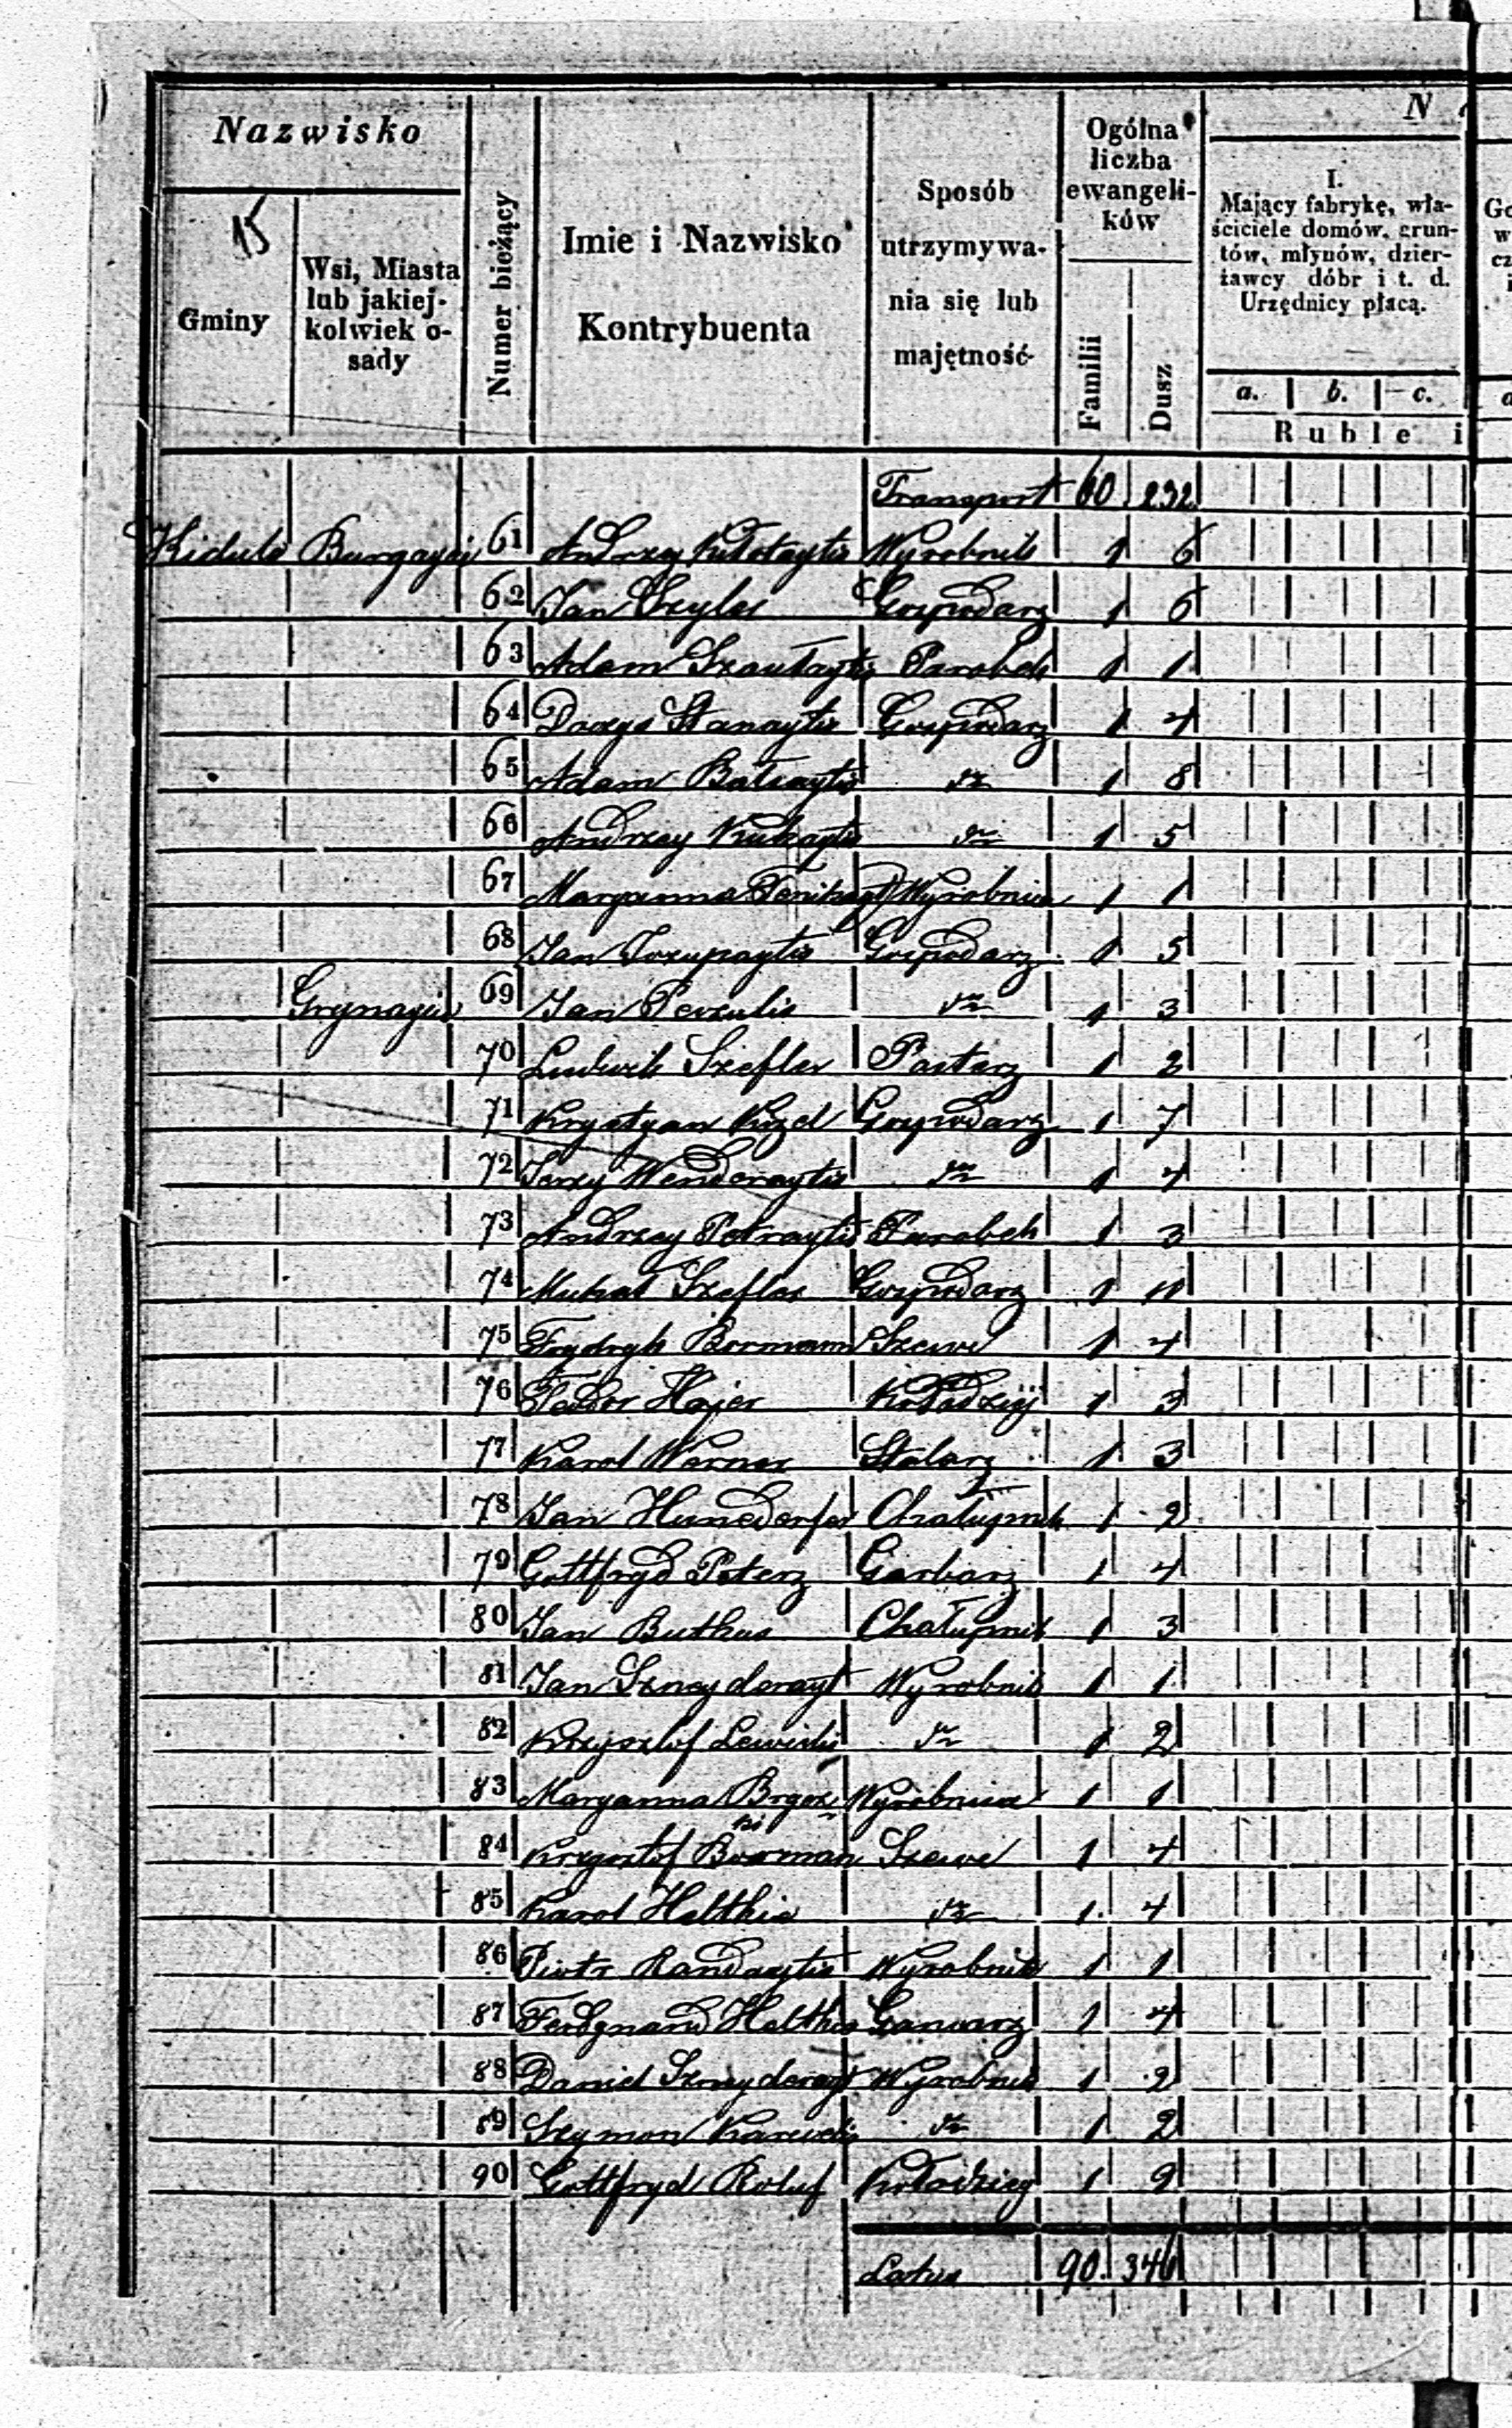 Nazwisko
15
Gminy
Wsi, Miasta
lub jakiej-
kolwiek o-
sady
Numer bieżący
Imie i Nazwisko
Kontrybuenta
Sposób
utrzymywa-
nia się lub
majętność
Ogólna
liczba
ewangeli-
ków
Familii
Dusz
N
I.
Mający fabrykę, wła-
ściciele domów, grun-
tów, młynów, dzier-
żawcy dóbr i t. d.
Urzędnicy płacą.
a. b. c.
Ruble i
Transport 60 232
Kidule 61 Andrzey Wyrobnik 1 6
62 Jan Szyler Gospodarz 1 6
63 Adam Szaułaytis Parobek 1 1
64 Stanaytis Gospodarz 1 4
65 Adam Bałzaytis dto 1 8
66 Andrzey Kukaytis dto 1 5
67 Maryanna Wyrobnica 1 1
68 Jan Jozupaytis Gospodarz 1 5
Grynaycie 69 Jan Perzulis dto 1 3
70 Ludwik Szefler Pasterz 1 2
71 Krystyan Gospodarz 1 7
72 Jerzy Wenderaytis dto 1 4
73 Andrzey Petraytis Parobek 1 3
74 Michał Szefler Gospodarz 1
75 Frydryk Bormann Szewc 1 4
76 Teodor Hajer Kołodziej 1 3
77 Karol Werner Stolarz 1 3
78 Jan Hunsdorfer Chałupnik 1 2
79 Gottfryd Peterz Garbarz 1 4
80 Jan Butkus Chałupnik 1 3
81 Jan Szneyderayt Wyrobnik 1 1
82 Krzysztof dto 1 2
83 Maryanna Wyrobnica 1 1
84 Krzysztof Borman Szewc 1 4
85 Karol Helthie dto 1 4
86 Piotr Randaytis Wyrobnik 1 1
87 Ferdynand Garncarz 1 4
88 Daniel Szneyderayt Wyrobnik 1 2
89 Szymon dto 1 2
90 Gottfryd Roluf Kołodziey 1 9
Latus 90 346